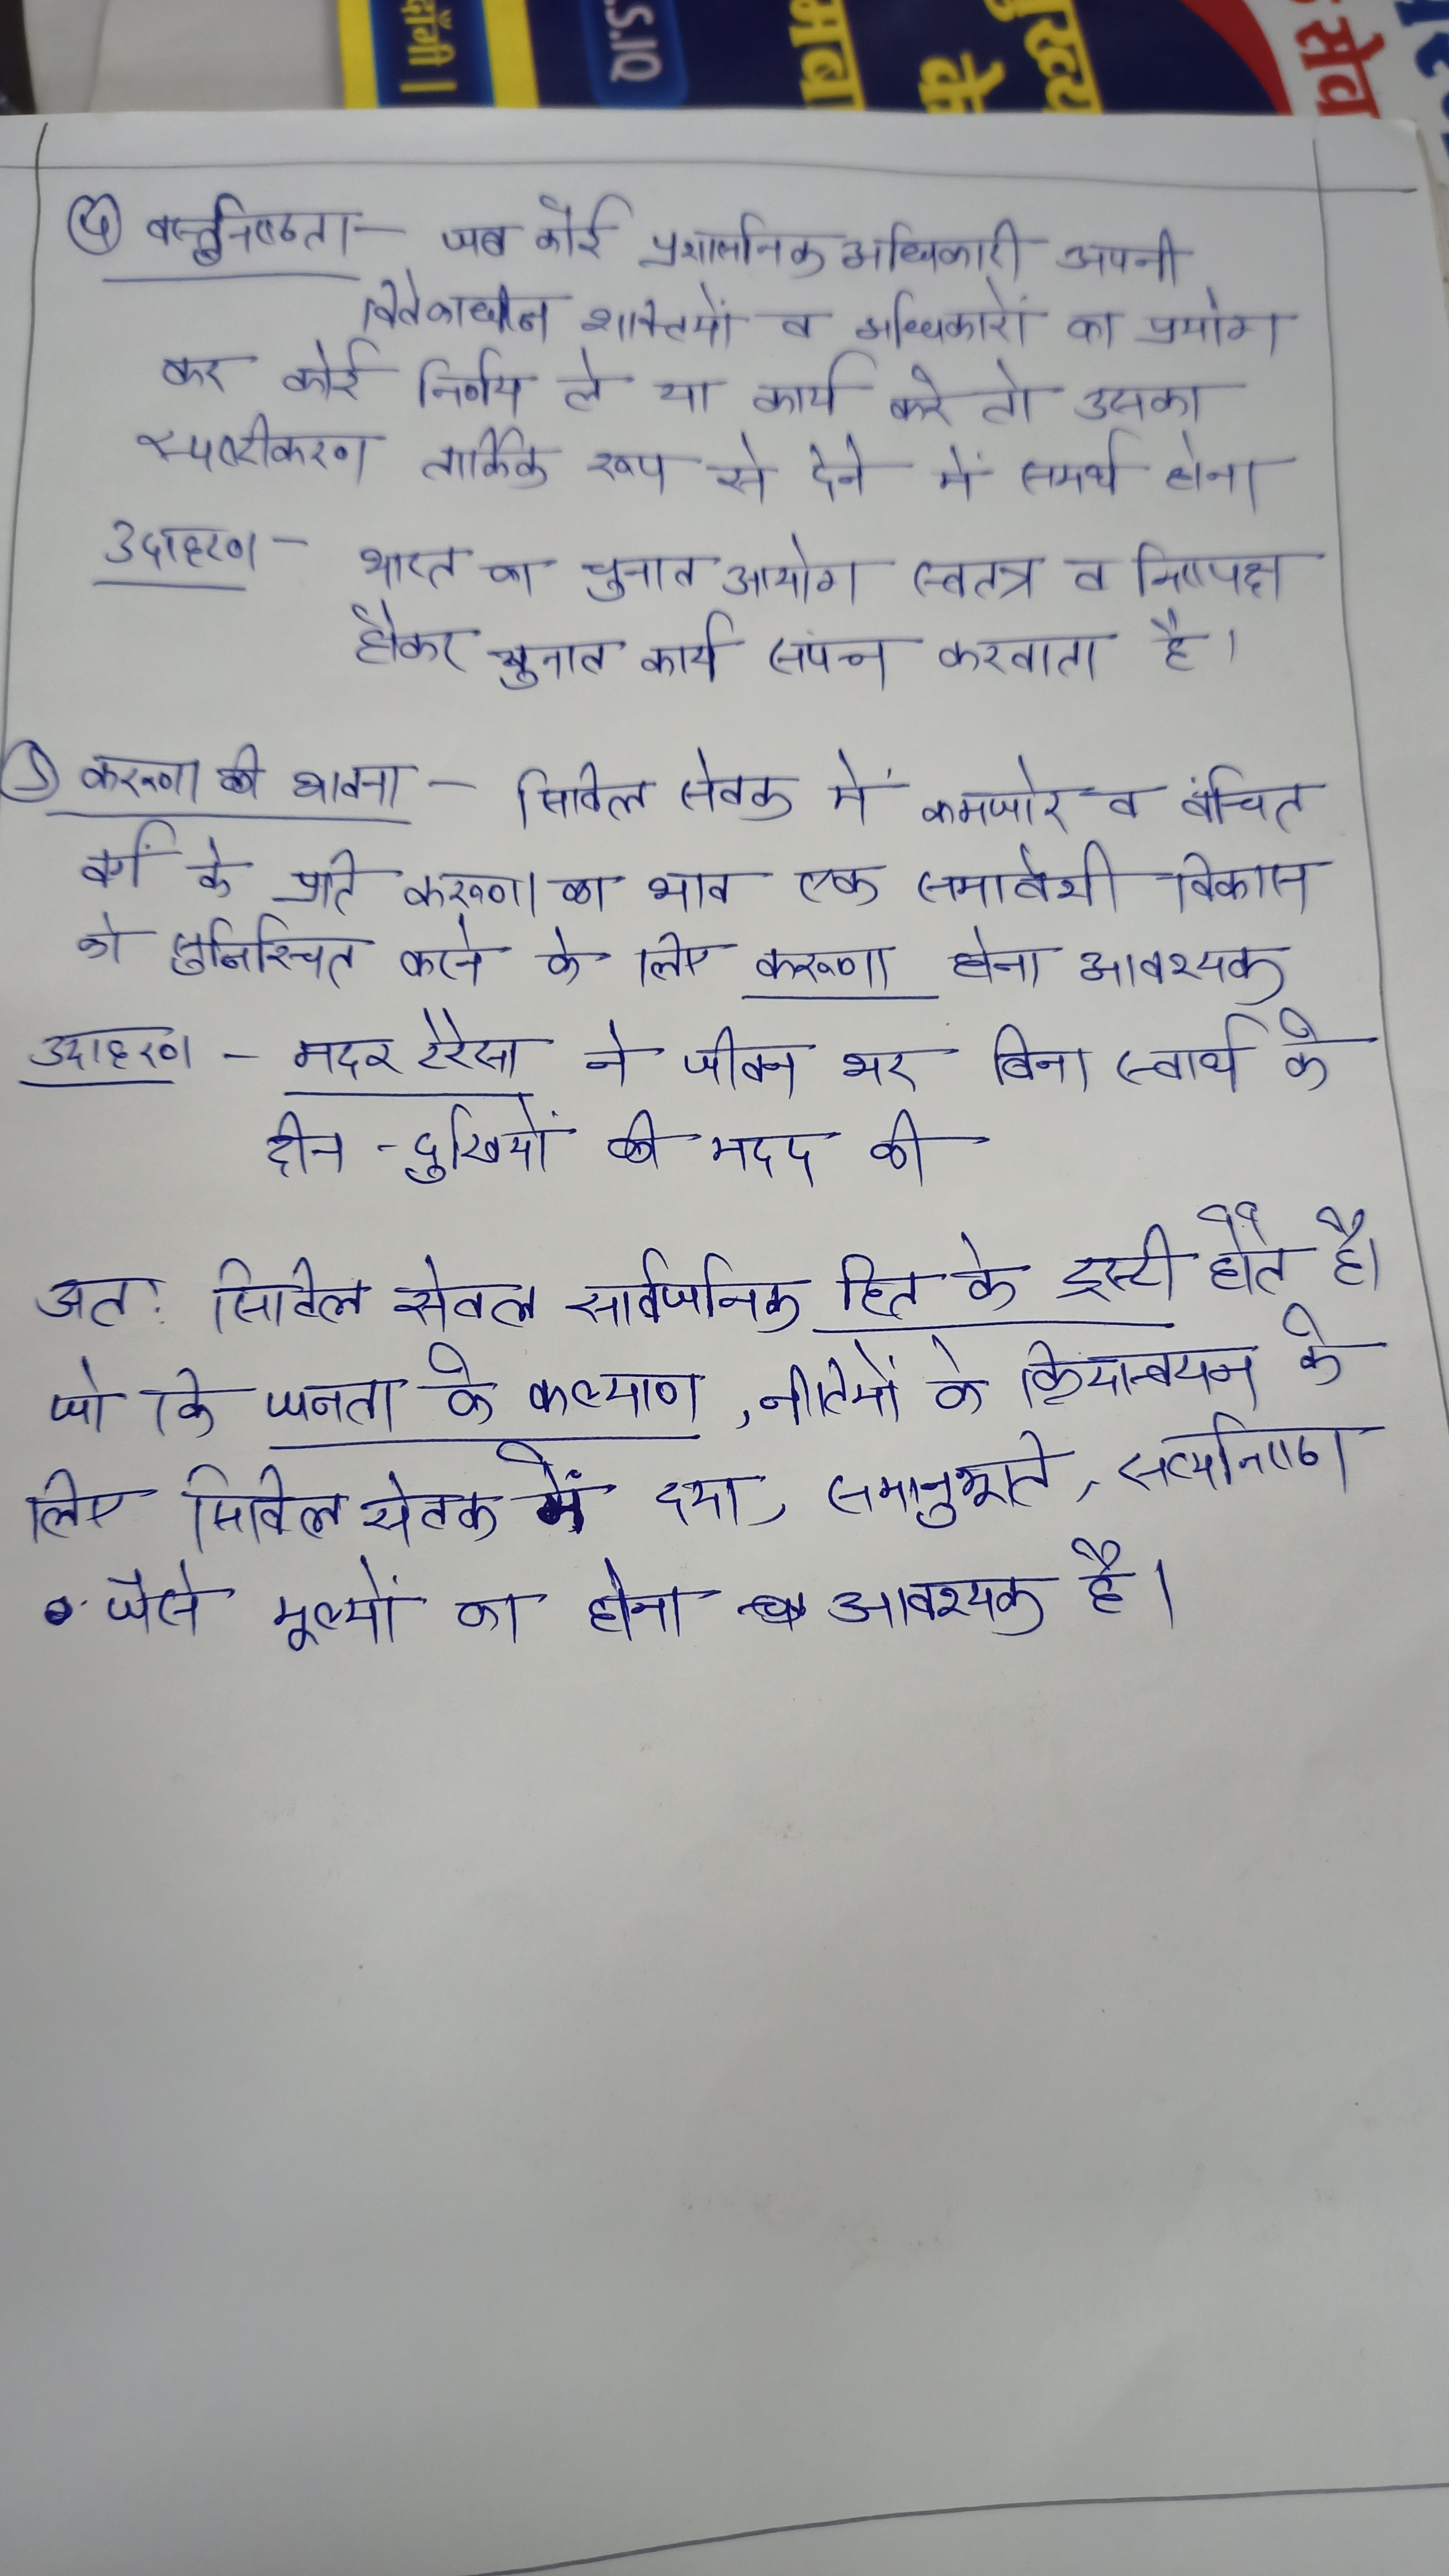 दाँगी।
S.IQ
के
सेव
④ वस्तुनिष्ठता - जब कोई प्रशासनिक अधिकारी अपनी
विवेकाधीन शक्तियों व अधिकारों का प्रयोग
कर कोई निर्णय ले या कार्य करे तो उसका
स्पष्टीकरण तार्किक रूप से देने में समर्थ होना
उदाहरण - भारत का चुनाव आयोग स्वतत्र व निष्पक्ष
होकर चुनाव कार्य संपन्न करवाता है।
करूणा की भावना - सिविल सेवक में कमजोर व वंचित
वर्ग के प्रति करूणा का भाव एक समावेशी विकास
को सुनिश्चित करने के लिए करूणा होना आवश्यक
उदाहरण - मदर टेरेसा ने जीवन भर बिना स्वार्थ के
दीन - दुखियों की मदद की
अत: सिविल सेवल सार्वजनिक हित के ट्रस्टी होते है।
जो कि जनता के कल्याण, नीतियों के क्रियान्वयन के
लिए सिविल सेवक में दया, समानुभूति, सत्यनिष्ठा
जैसे मूल्यों का होना आवश्यक है।